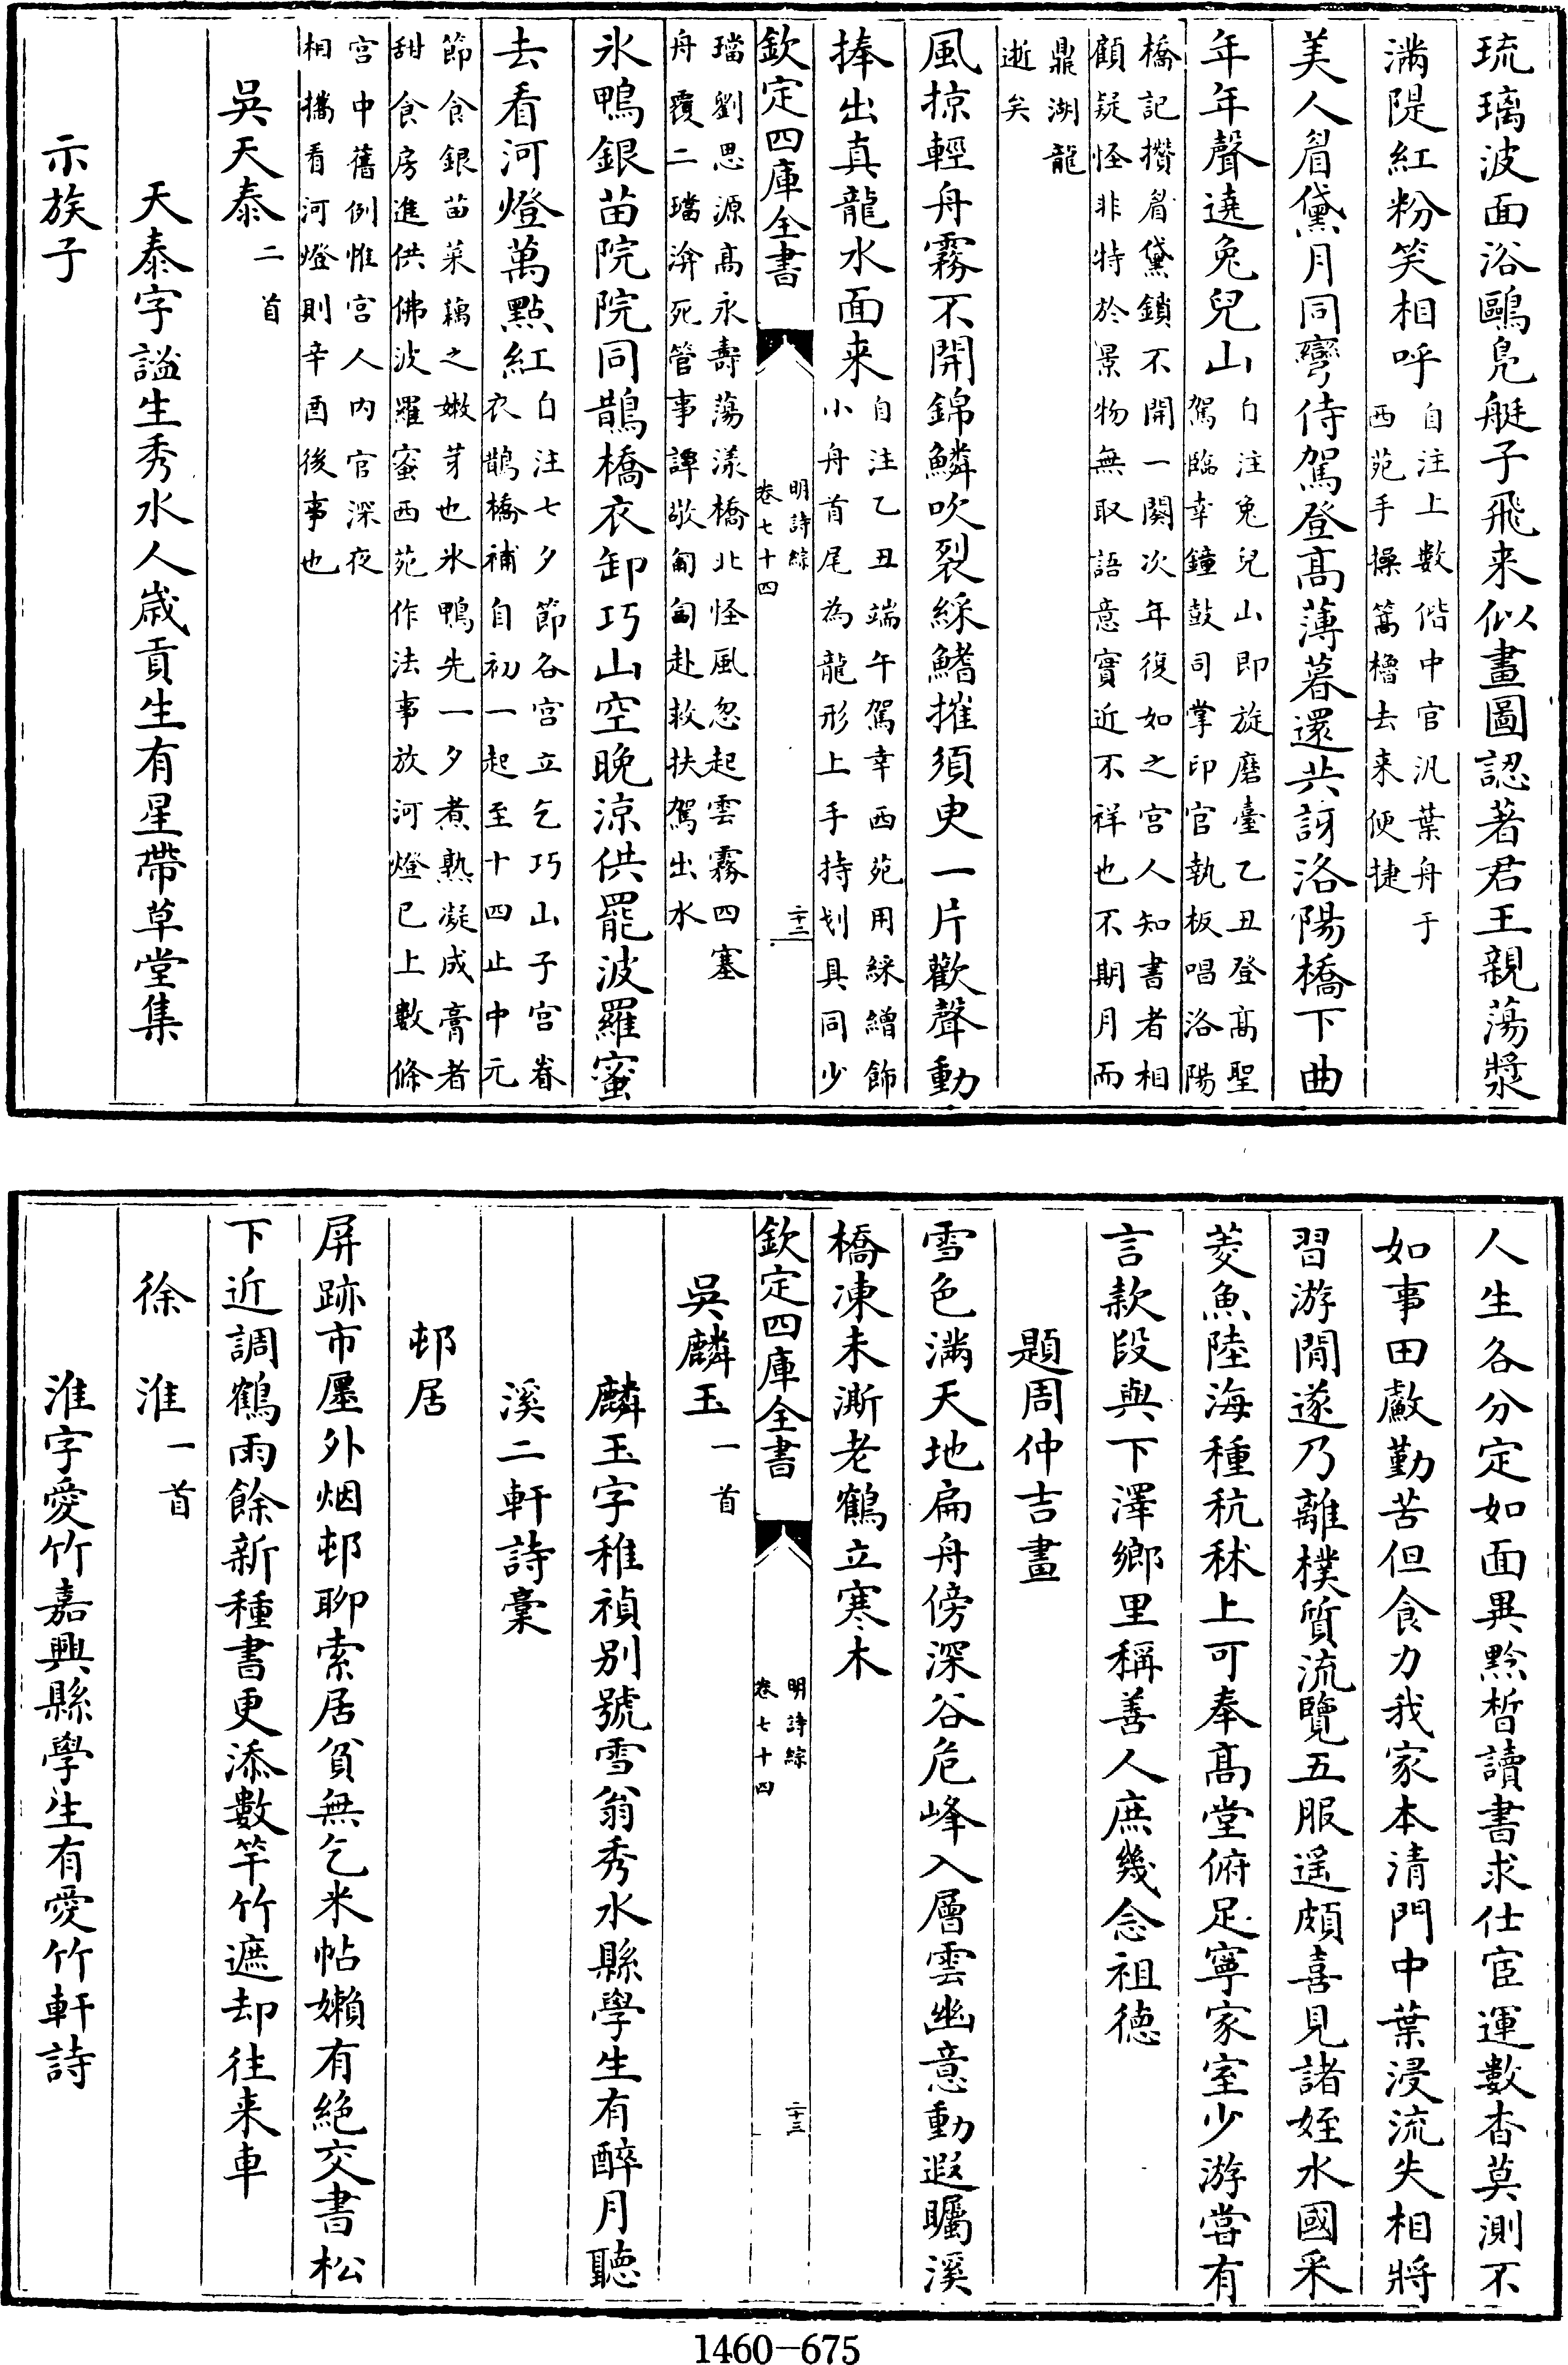 琉璃波面浴鷗鳬艇子飛来似畫圖認著君王親蕩漿
滿隄紅粉笑相呼自注上數偕中官汎葉舟于西苑手操篙櫓去来便捷
美人眉黛月同彎侍駕登髙薄暮還共訝洛陽橋下曲
年年聲遶兔兒山自注兔兒山即旋磨臺乙丑登髙聖駕臨幸鐘鼓司掌印官執板唱洛陽
橋記攢眉黛鎖不開一闋次年復如之宫人知書者相顧疑怪非特於景物無取語意實近不祥也不期月而
鼎湖龍逝矣
風掠輕舟霧不開錦鱗吹裂綵鰭摧須臾一片歡聲動
捧出真龍水面来自注乙丑端午駕幸西苑用綵繒飾小舟首尾為龍形上手持划具同少
欽定四庫全書
明詩綜
卷七十四
二十二
璫劉思源髙永壽蕩漾橋北怪風忽起雲霧四塞舟覆二璫渰死管事譚敬匍匐赴救扶駕出水
氷鴨銀苗院院同鵲橋衣卸巧山空晚涼供罷波羅蜜
去看河燈萬點紅自注七夕節各宫立乞巧山子宫眷衣鵲橋補自初一起至十四止中元
節食銀苗菜藕之嫩芽也氷鴨先一夕煮熟凝成膏者甜食房進供佛波羅蜜西苑作法事放河燈已上數條
宫中舊例惟宫人内官深夜相攜看河燈則辛酉後事也
吳天泰二首
天泰字謐生秀水人歳貢生有星帶草堂集
示族子
人生各分定如面異黔晳讀書求仕宦運數杳莫測不
如事田畝勤苦但食力我家本清門中葉浸流失相將
習游閒遂乃離樸質流覽五服遥頗喜見諸姪水國釆
菱魚陸海種秔秫上可奉髙堂俯足寧家室少游嘗有
言款段與下澤鄉里稱善人庶幾念祖德
題周仲吉畫
雪色滿天地扁舟傍深谷危峰入層雲幽意動遐矚溪
橋凍未澌老鶴立寒木
欽定四庫全書
明詩綜
卷七十四
二十三
吳麟玉一首
麟玉字稚禎别號雪翁秀水縣學生有醉月聽
溪二軒詩稾
邨居
屏跡市㕓外烟邨聊索居貧無乞米帖嬾有絶交書松
下近調鶴雨餘新種書更添數竿竹遮却往来車
徐淮一首
淮字愛竹嘉興縣學生有愛竹軒詩
1460-675